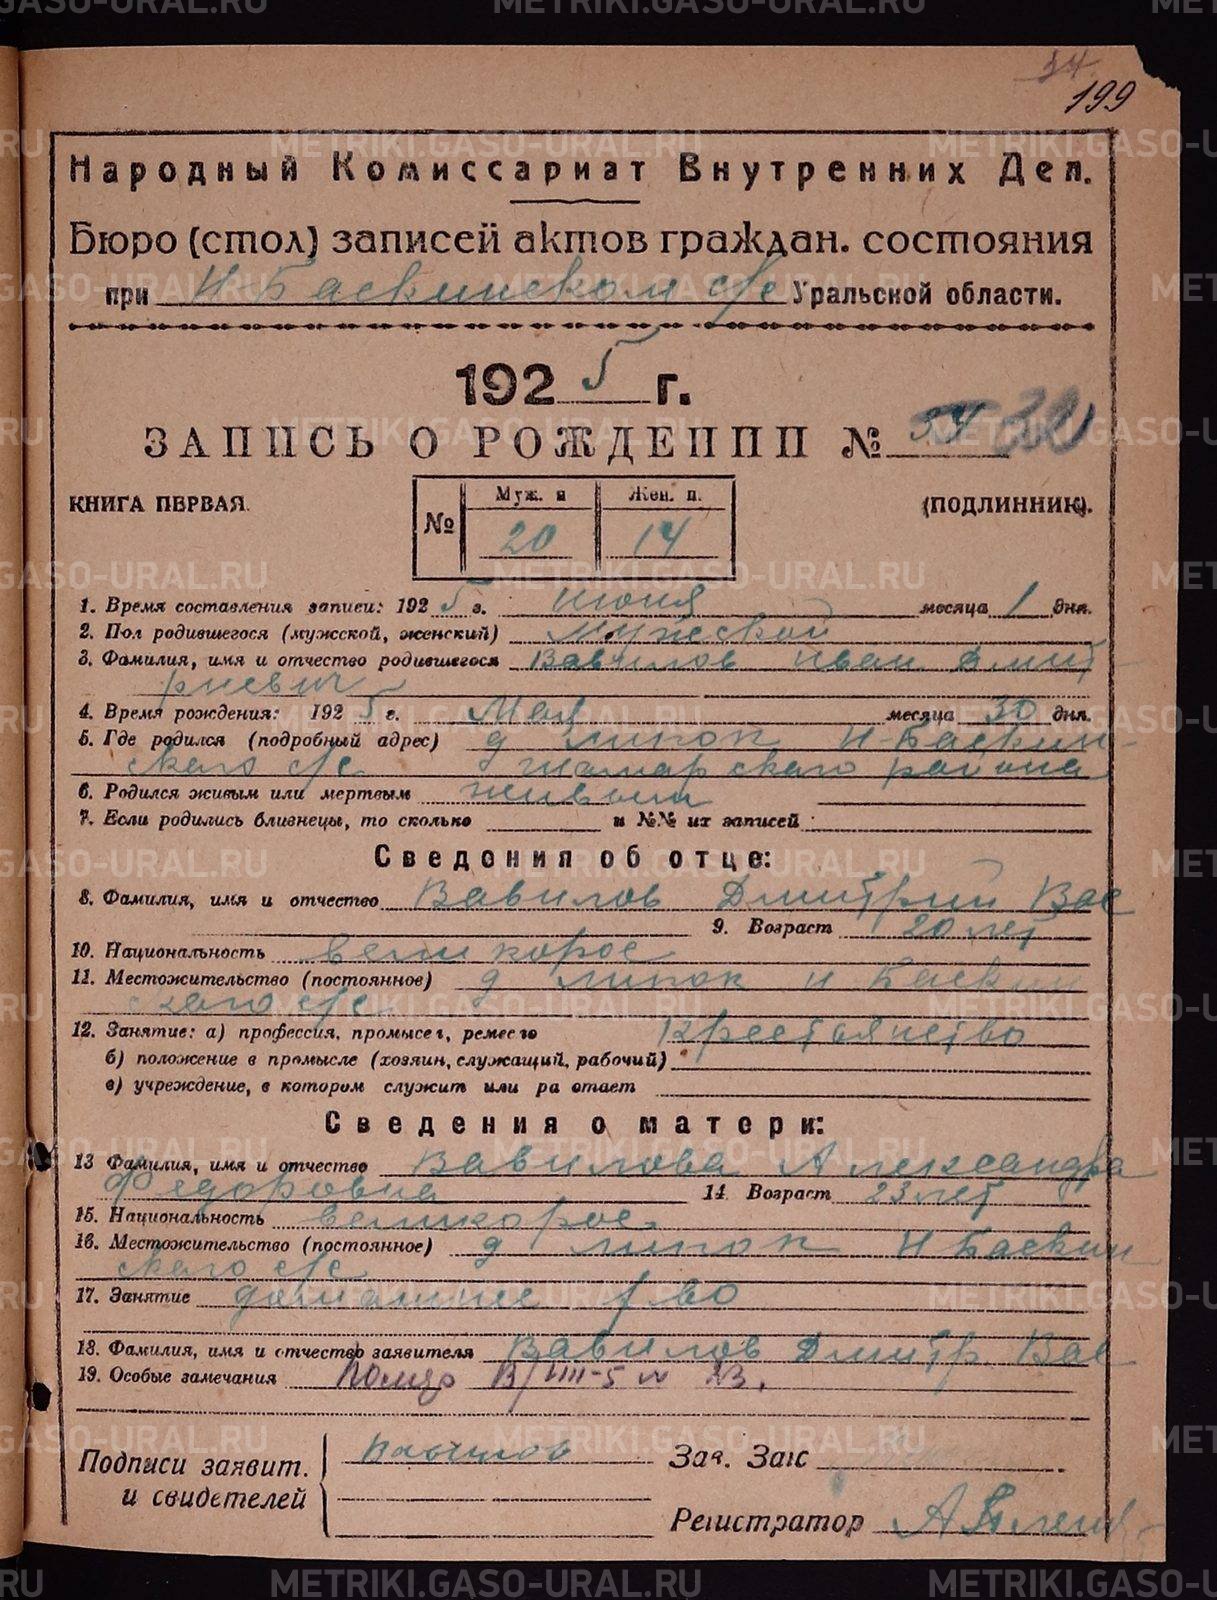 34
199
Народный Комиссариат Внутренних Дел.
Бюро (стол) записей актов граждан. состояния
при Н-Баскинском с/с Уральской области.
1925 г.
ЗАПИСЬ О РОЖДЕНИИ № 34
КНИГА ПЕРВАЯ. № Муж. п Жен. п. (ПОДЛИННИК).
20 14
1. Время составления записи: 1925 г. июня месяца 1 дня.
2. Пол родившегося (мужской, женский) мужеской
3. Фамилия, имя и отчество родившегося Вавилов Иван Дмит
риевич
4. Время рождения: 1925 г. Мая месяца 30 дня.
5. Где родился (подробный адрес) д липок Н-Баскин-
скаго с/с района
6. Родился живым или мертвым живым
7. Если родились близнецы, то сколько и №№ их записей
Сведения об отце:
8. Фамилия, имя и отчество Вавилов Дмитрий Вас
9. Возраст 20 лет
10. Национальность великорос
11. Местожительство (постоянное) д липок Н Баскин
скаго с/с
12. Занятие: а) профессия, промысел, ремесло Крестоянство
б) положение в промысле (хозяин, служащий, рабочий)
в) учреждение, в котором служит или ра отает
Сведения о матери:
13 Фамилия, имя и отчество Вавилова Александра
Федоровна 14. Возраст 23 лет
15. Национальность великорос
16. Местожительство (постоянное) д липок Н Баскин
скаго с/с
17. Занятие домашнее
18. Фамилия, имя и отчество заявителя Вавилов Дмитр. Вас
19. Особые замечания
Подписи заявит. Вавилов Зав. Загс
и свидетелей
Регистратор
METRIKI.GASO-URAL.RU